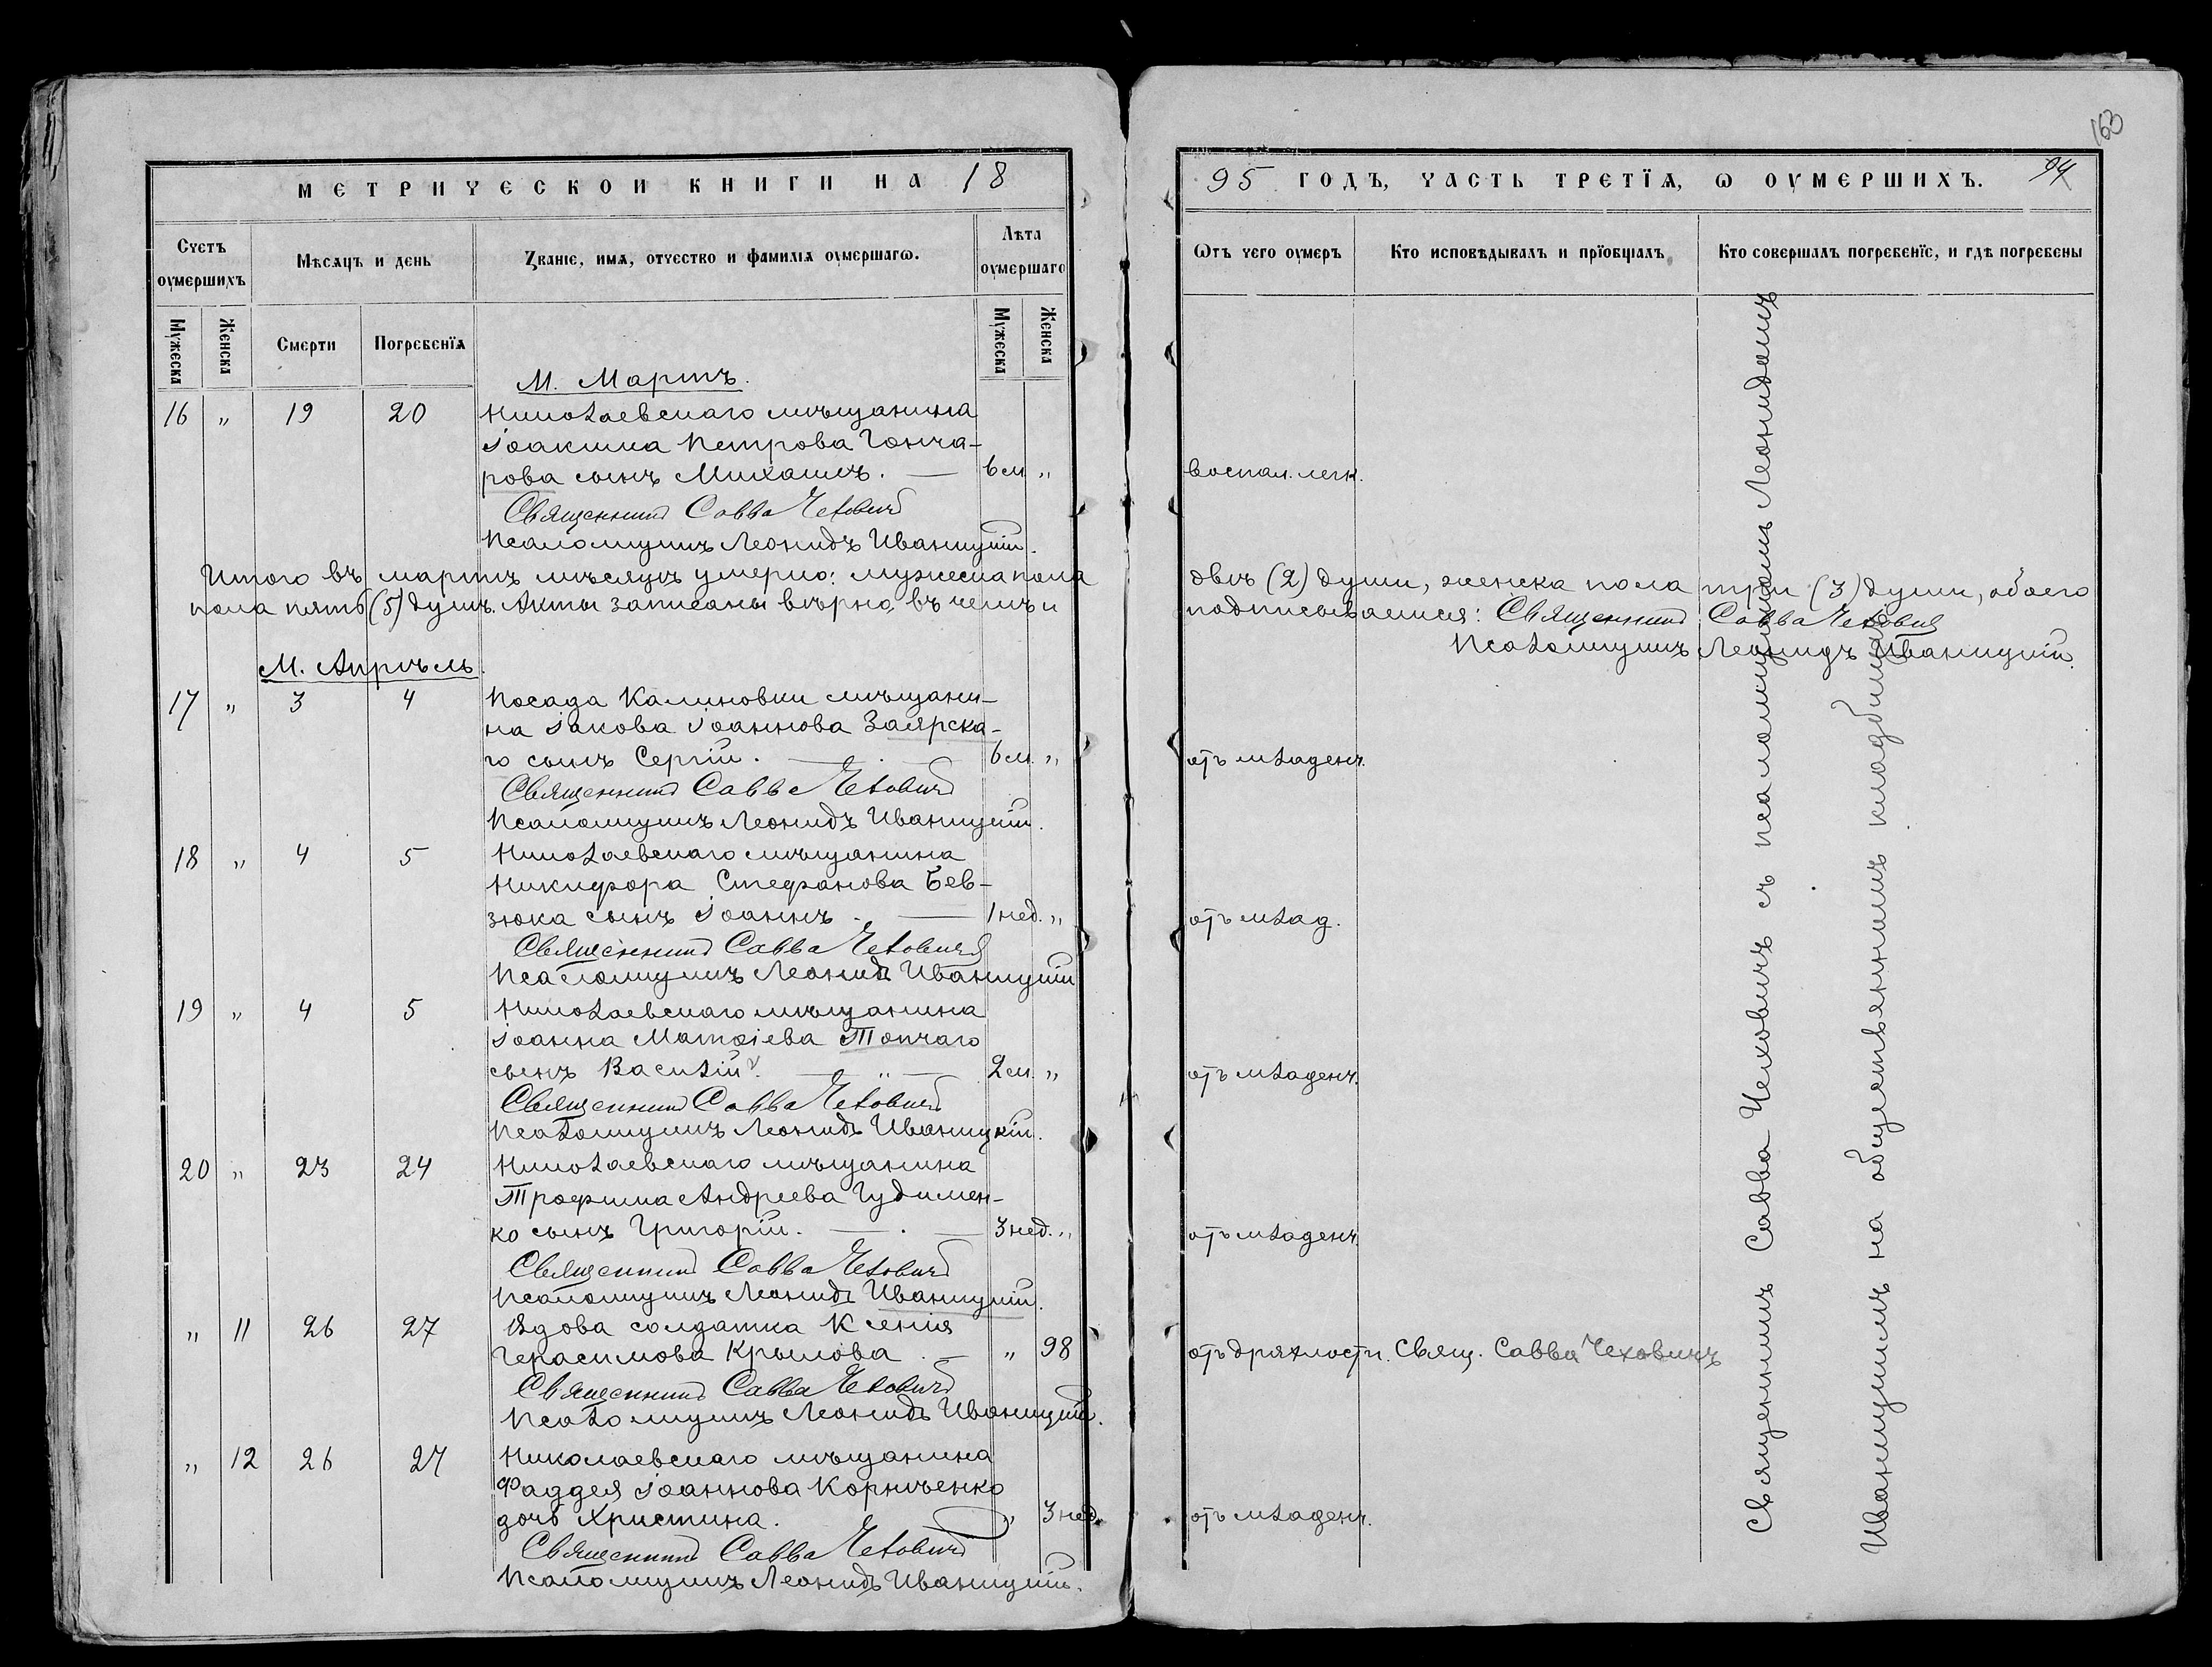 МЕТРИЧЕСКОЙ КНИГИ НА 18
Счетъ оумершихъ
Мѣсяцъ и день
Званіе, имя, отчество и фамилія оумершагѡ.
Лѣта оумершаго
Мужеска
Женска
Смерти
Погребенїя
Мужеска
Женска
М. Мартъ.
16 " 19 20 Николаевскаго мѣщанина
Іоакима Петрова Гонча-
рова сынъ Михаилъ. — 6 м. "
Священникъ Савва Чеховичъ
Псаломщикъ Леонидъ Иваницкій.
Итого въ мартѣ мѣсяцѣ умерло: мужеска пола
пола пять (5) душъ. Акты записаны вѣрно, въ чемъ и
М. Апрѣль.
17 " 3 4 Посада Калиновки мѣщани-
на Іакова Іоаннова Заярска-
го сынъ Сергій. — 6 м. "
Священникъ Савва Чеховичъ
Псаломщикъ Леонидъ Иваницкій.
18 " 4 5 Николаевскаго мѣщанина
Никифора Стефанова Бев-
зюка сынъ Іоаннъ. — 1 нед. "
Священникъ Савва Чеховичъ
Псаломщикъ Леонидъ Иваницкій
19 " 4 5 Николаевскаго мѣщанина
Іоанна Матѳіева Топчаго
сынъ Василій. — " — 2 м. "
Священникъ Савва Чеховичъ
Псаломщикъ Леонидъ Иваницкій.
20 " 23 24 Николаевскаго мѣщанина
Трофима Андреева Гудимен-
ко сынъ Григорій. — . — 3 нед. "
Священникъ Савва Чеховичъ
Псаломщикъ Леонидъ Иваницкій.
" 11 26 27 Вдова солдатка Ксенія
Герасимова Крылова. — " 98
Священникъ Савва Чеховичъ
Псаломщикъ Леонидъ Иваницкій.
" 12 26 27 Николаевскаго мѣщанина
Фаддея Іоаннова Корніенко
дочь Христина. " 3 нед.
Священникъ Савва Чеховичъ
Псаломщикъ Леонидъ Иваницкій.
163
95 ГОДЪ, ЧАСТЬ ТРЕТЇЯ, Ѡ ОУМЕРШИХЪ. 94
Ѡтъ чего оумеръ
Кто исповѣдывалъ и прїобщалъ
Кто совершалъ погребенїе, и гдѣ погребены
воспал. легк.
двѣ (2) души, женска пола три (3) души, обоего
подписываемся: Священникъ Савва Чеховичъ
Псаломщикъ Леонидъ Иваницкій.
отъ младенч.
отъ млад.
отъ младенч.
отъ младенч.
отъ дряхлости. Свящ. Савва Чеховичъ
отъ младенч.
Священникъ Савва Чеховичъ съ псаломщикомъ Леонидомъ
Иваницкимъ на общественномъ кладбищѣ